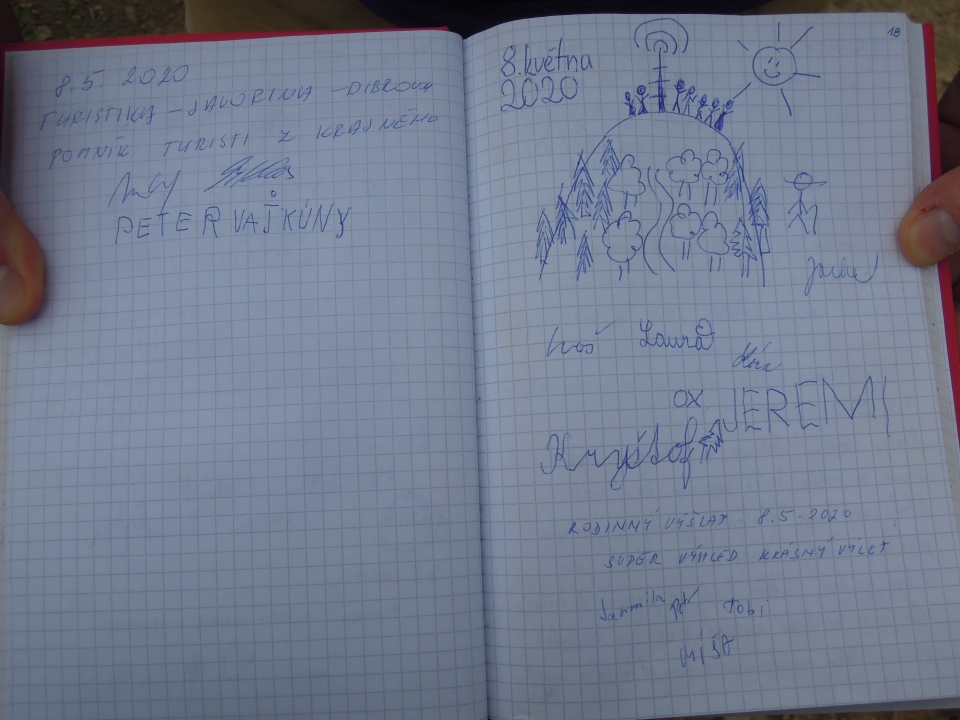 8.5. 2020
TURISTIKA - JAVORINA - DIBROVA
POMNÍK TURISTI Z KRASNÉHO
PETER VAŤKÚNY
18
8. května
2020
Laura
OX JEREMI
Kryštof
RODINNÝ VÝŠLAP 8.5.2020
SUPER VÝHLED KRÁSNÝ VÝLET
Jarmila Petr Tobi
MÍŠA